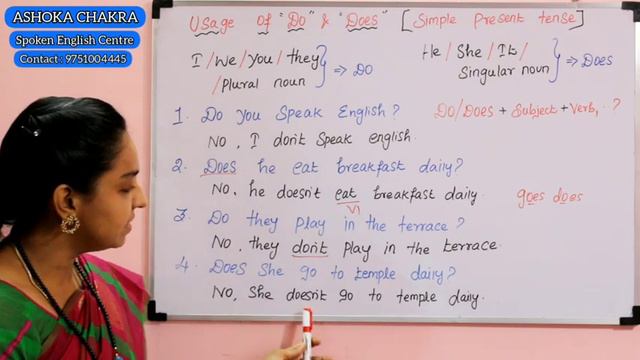 ASHOKA CHAKRA
Spoken English Centre
Contact : 9751004445
Usage of "Do" & "Does" [Simple Present tense]
I / We / You / they / Plural noun } => DO
He / She / It / Singular noun } => DOES
1. Do you Speak English?
DO/DOES + Subject + Verb, . ?
No, I don't Speak english.
2. Does he eat breakfast daily?
No, he doesn't eat breakfast daily.
V1
goes does
3. Do they play in the terrace?
No, they don't play in the terrace.
4. Does she go to temple daily?
No, She doesn't go to temple daily.